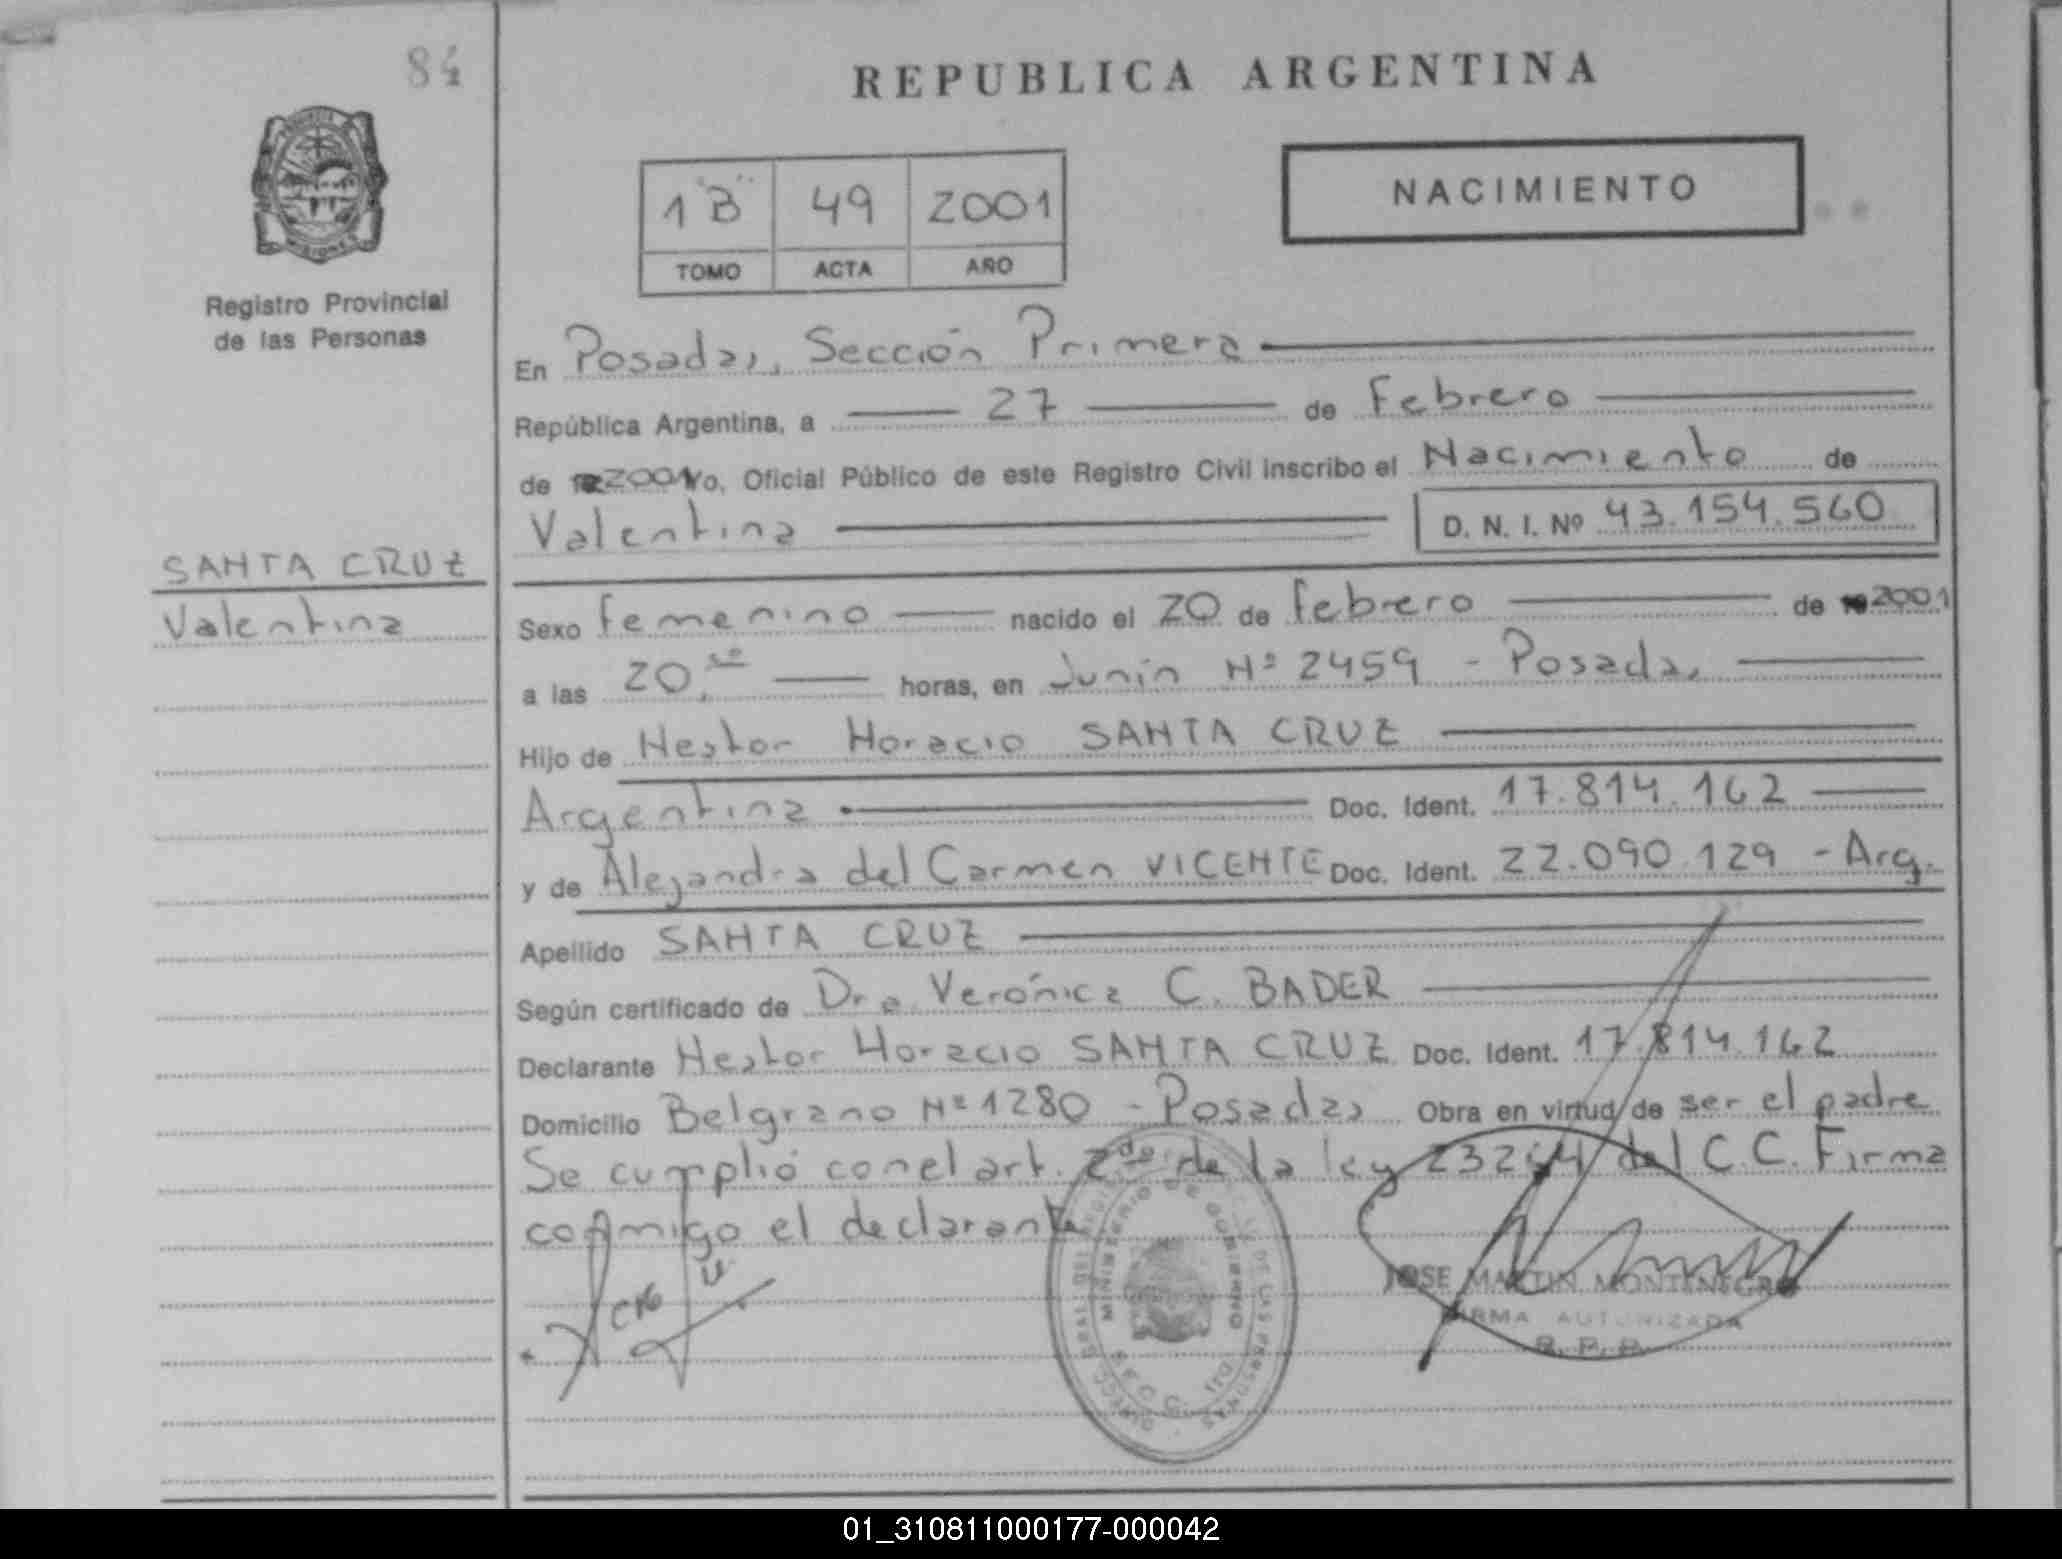 84
REPUBLICA ARGENTINA
1 "B" 49 2001
TOMO ACTA AÑO
NACIMIENTO
MISIONES
Registro Provincial
de las Personas
En Posadas, Sección Primera
República Argentina, a 27 de Febrero
de 2001 Yo, Oficial Público de este Registro Civil inscribo el Nacimiento de
Valentina D. N. I. Nº 43.154.560
SANTA CRUZ
Valentina
Sexo femenino nacido el 20 de febrero de 2001
a las 20, horas, en Junín Nº 2459 - Posadas
Hijo de Hestor Horacio SANTA CRUZ
Argentina Doc. Ident. 17.814.162
y de Alejandra del Carmen VICENTE Doc. Ident. 22.090.129 - Arg.
Apellido SANTA CRUZ
Según certificado de Dra Verónica C. BADER
Declarante Hestor Horacio SANTA CRUZ Doc. Ident. 17.814.162
Domicilio Belgrano Nº 1280 - Posadas Obra en virtud de ser el padre
Se cumplió con el art. 2do de la ley 23264 del C.C. Firma
conmigo el declarante
MINISTERIO DE GOBIERNO
JOSE MARTIN MONTENEGRO
FIRMA AUTORIZADA
R. P. P.
01_310811000177-000042